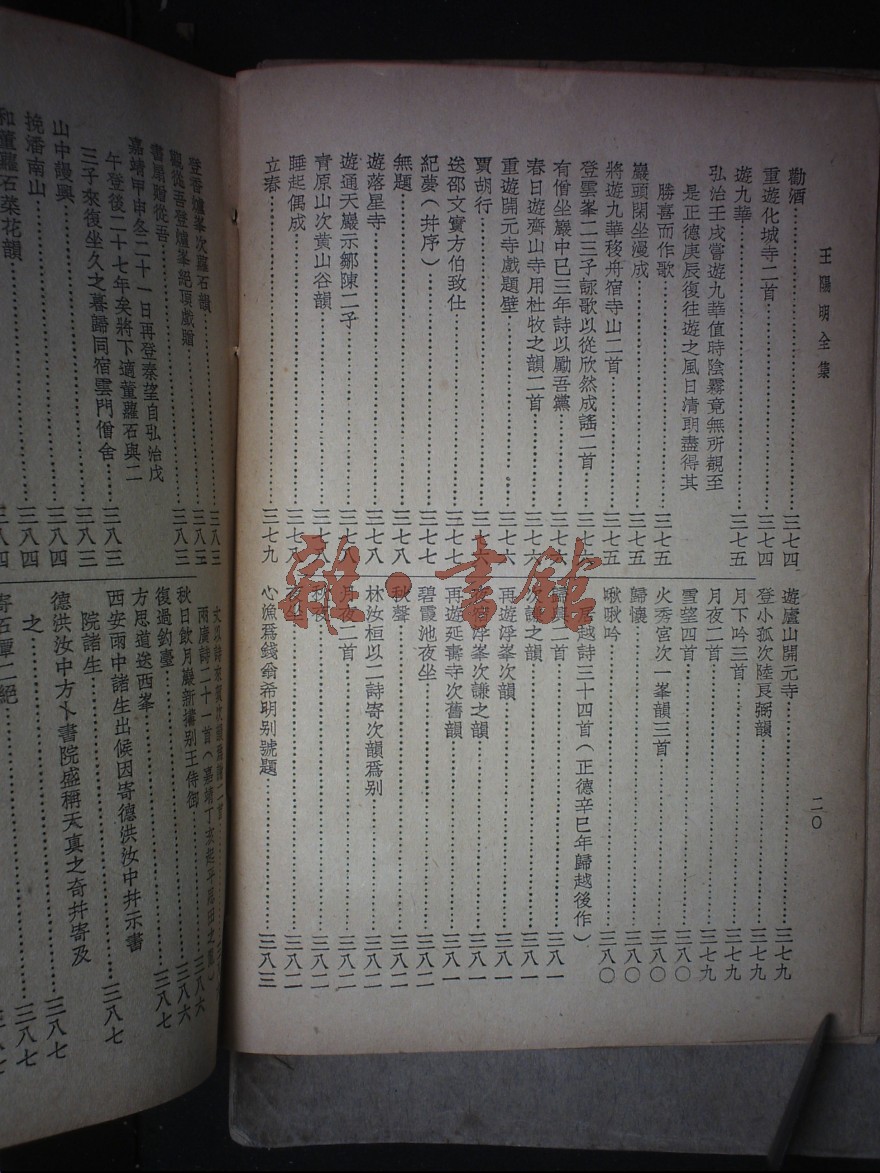 王陽明全集
二〇
勸酒⋯⋯三七四
重遊化城寺二首⋯⋯三七四
遊九華⋯⋯三七五
弘治壬戌嘗遊九華值時陰霧竟無所覩至
是正德庚辰復往遊之風日清朗盡得其
勝喜而作歌⋯⋯三七五
巖頭閑坐漫成⋯⋯三七五
將遊九華移舟宿寺山二首⋯⋯三七五
登雲峯二三子詠歌以從欣然成謠二首⋯⋯三七六
有僧坐巖中已三年詩以勵吾黨⋯⋯三七六
春日遊齊山寺用杜牧之韻二首⋯⋯三七六
重遊開元寺戲題壁⋯⋯三七六
賈胡行⋯⋯三七六
送邵文實方伯致仕⋯⋯三七七
紀夢（幷序）⋯⋯三七七
無題⋯⋯三七八
遊落星寺⋯⋯三七八
遊通天巖示鄒陳二子⋯⋯三七八
青原山次黃山谷韻⋯⋯三七八
睡起偶成⋯⋯三七八
立春⋯⋯三七九
遊廬山開元寺⋯⋯三七九
登小孤次陸良弼韻⋯⋯三七九
月下吟三首⋯⋯三七九
月夜二首⋯⋯三七九
雪望四首⋯⋯三八〇
火秀宮次一峯韻三首⋯⋯三八〇
歸懷⋯⋯三八〇
啾啾吟⋯⋯三八〇
居越詩三十四首（正德辛巳年歸越後作）
歸興二首⋯⋯三八一
次謙之韻⋯⋯三八一
再遊浮峯次韻⋯⋯三八一
夜宿浮峯次謙之韻⋯⋯三八一
再遊延壽寺次舊韻⋯⋯三八一
碧霞池夜坐⋯⋯三八二
秋聲⋯⋯三八二
林汝桓以二詩寄次韻爲別⋯⋯三八二
月夜二首⋯⋯三八二
秋夜⋯⋯三八二
夜坐⋯⋯三八二
心漁爲錢翁希明別號題⋯⋯三八三
登香爐峯次蘿石韻⋯⋯三八三
觀從吾登爐峯絕頂戲贈⋯⋯三八三
書扇贈從吾⋯⋯三八三
嘉靖甲申冬二十一日再登秦望自弘治戊
午登後二十七年矣將下適董蘿石與二
三子來復坐久之暮歸同宿雲門僧舍⋯⋯三八三
山中謾興⋯⋯三八四
挽潘南山⋯⋯三八四
和董蘿石菜花韻⋯⋯三八四
兩廣詩二十一首
秋日飲月巖新搆別王侍御⋯⋯三八六
復過釣臺⋯⋯三八六
方思道送西峯⋯⋯三八七
西安雨中諸生出候因寄德洪汝中幷示書
院諸生⋯⋯三八七
德洪汝中方卜書院盛稱天真之奇幷寄及
之⋯⋯三八七
寄石潭二絕
雜·書館